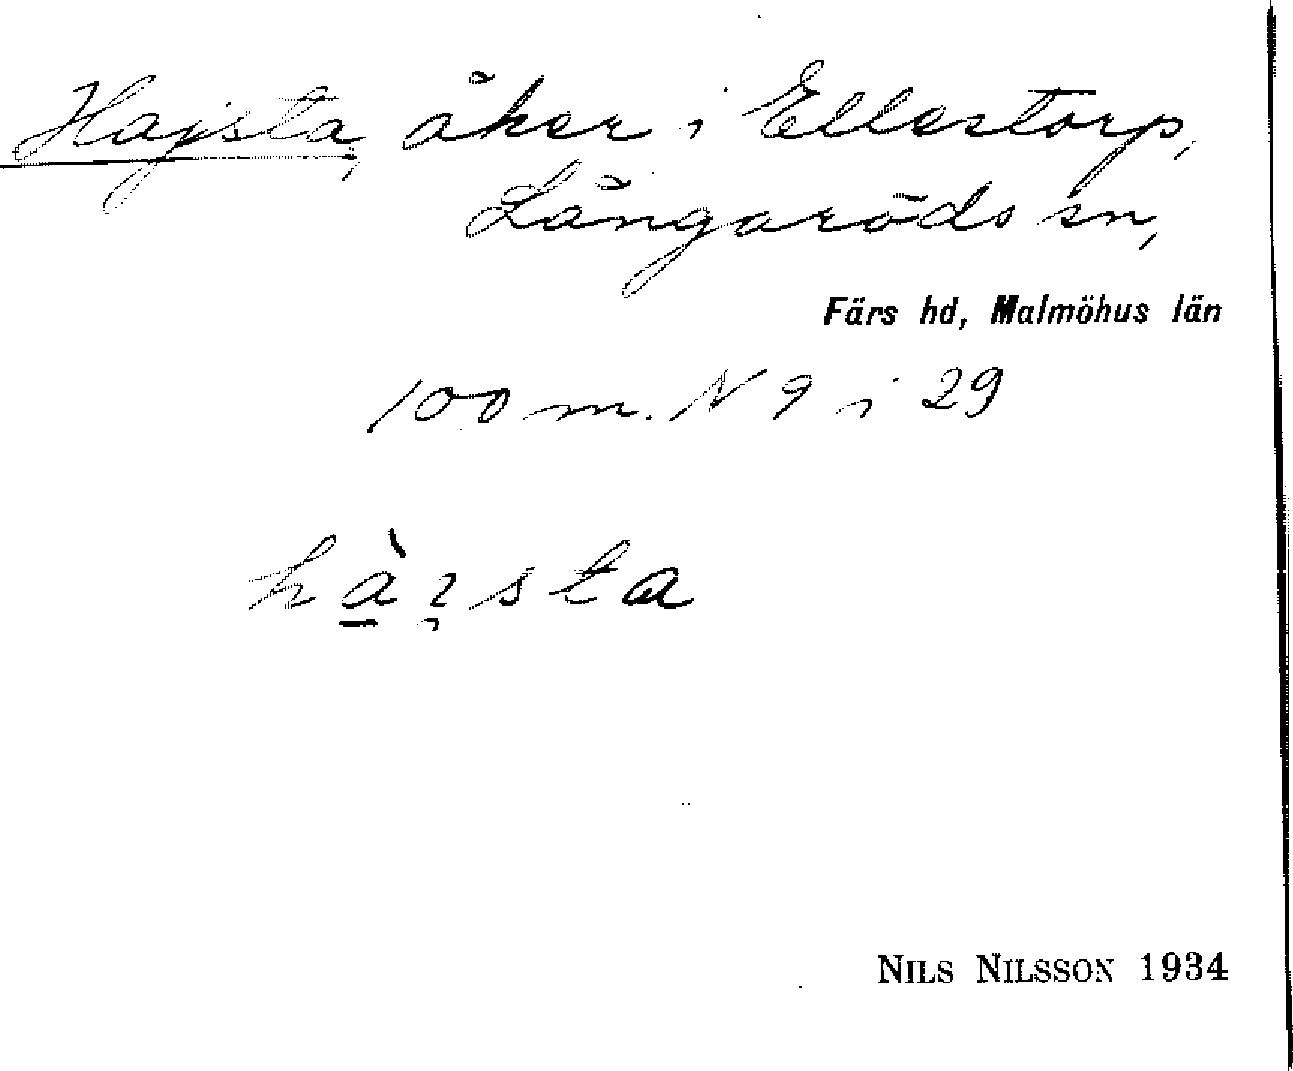 Hajsta, åker i Ellestorp,
Långaröds sn,
Färs hd, Malmöhus län
100 m. N 9 i 29
NILS NILSSON 1934